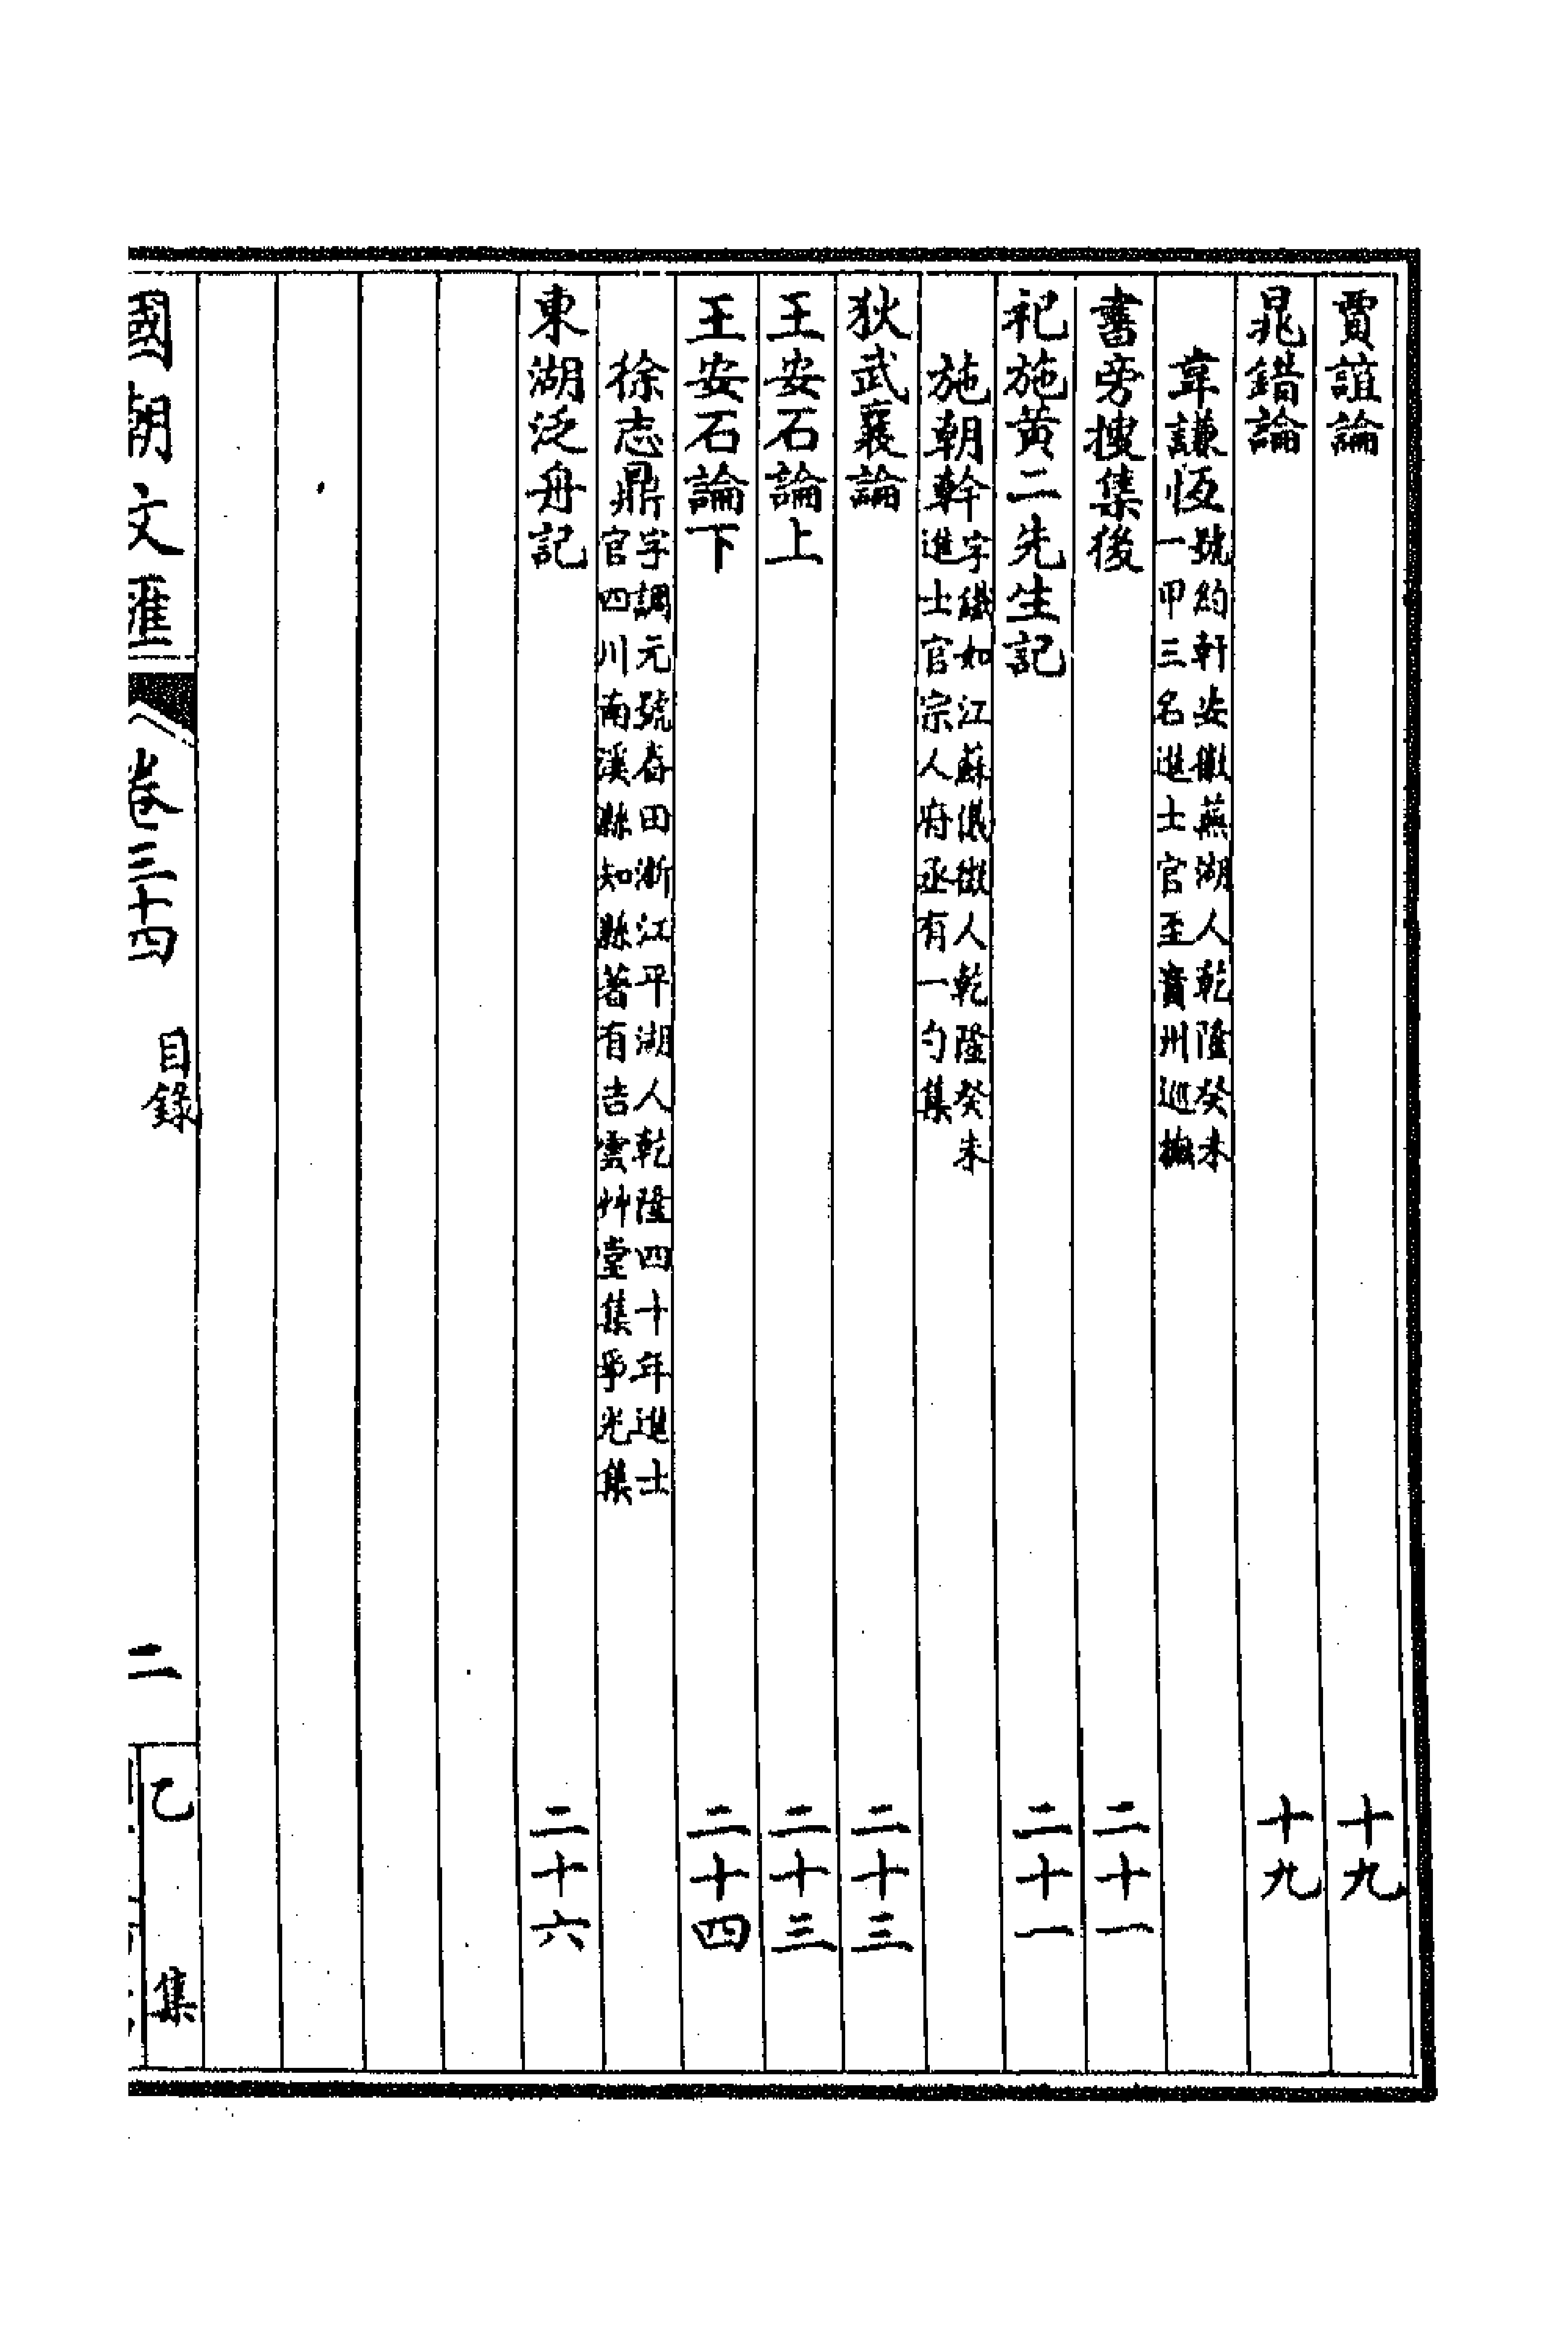 賈誼論　十九
晁錯論　十九
韋謙恆號約軒安徽蕪湖人乾隆癸未
一甲三名進士官至貴州巡撫
書旁搜集後　二十一
祀施黃二先生記　二十一
施朝幹字鐵如江蘇儀徵人乾隆癸未
進士官宗人府丞有一勺集
狄武襄論　二十三
王安石論上　二十三
王安石論下　二十四
徐志鼎字調元號春田浙江平湖人乾隆四十年進士
官四川南溪縣知縣著有吉雲艸堂集爭光集
東湖泛舟記　二十六
國朝文匯　卷三十四　目錄　二　乙集